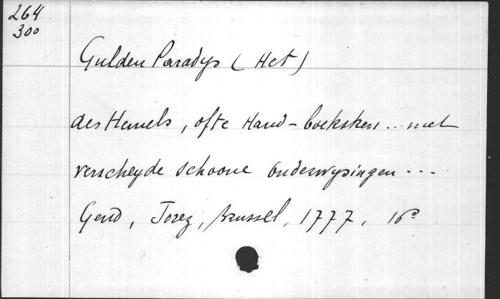 264
300
Gulden Paradys ( Het )
des Hemels, ofte Hand-boeksken ... met
verscheyde schoone onderwysingen ...
Gend, Jorez, Brussel, 1777, 16°